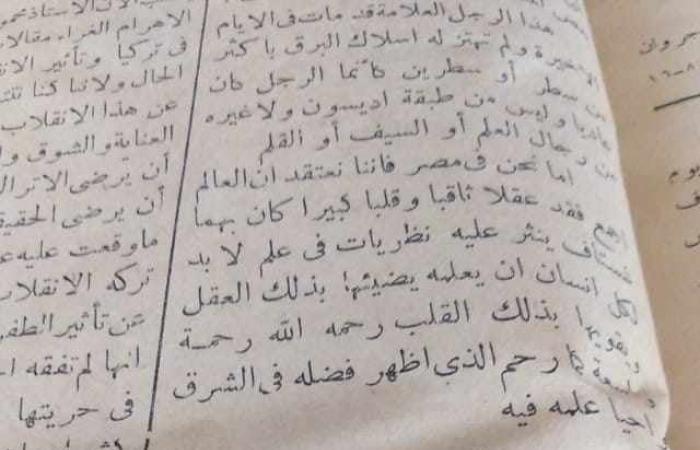 يوم
هذا الرجل العلامة قد مات في الايام
الاخيرة ولم تهتز له اسلاك البرق باكثر
من سطر أو سطرين كأنما الرجل كان
عاديا وليس من طبقة اديسون ولا غيره
من رجال العلم أو السيف أو القلم
اما نحن في مصر فاننا نعتقد ان العالم
اجمع فقد عقلا ثاقبا وقلبا كبيرا كان بهما
غستاف ينثر عليه نظريات في علم لا بد
لكل انسان ان يعلمه يضيئها بذلك العقل
بذلك القلب رحمه الله رحمة
رحم الذي اظهر فضله في الشرق
احيا علمه فيه
الاهرام الغراء مقالا
في تركيا وتأثير
الحال ولاننا كنا
عن هذا الانقلاب
العناية والشوق
أن يرضى الاترا
أن يرضى
ما وقعت عليه
تركه الانقلا
عن تأثير
انها لم تفقه
في حريتها